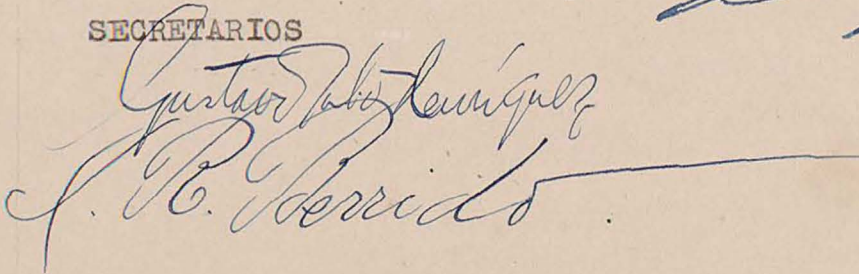 SECRETARIOS
Gustavo Julio Henríquez
J. R. Berrido